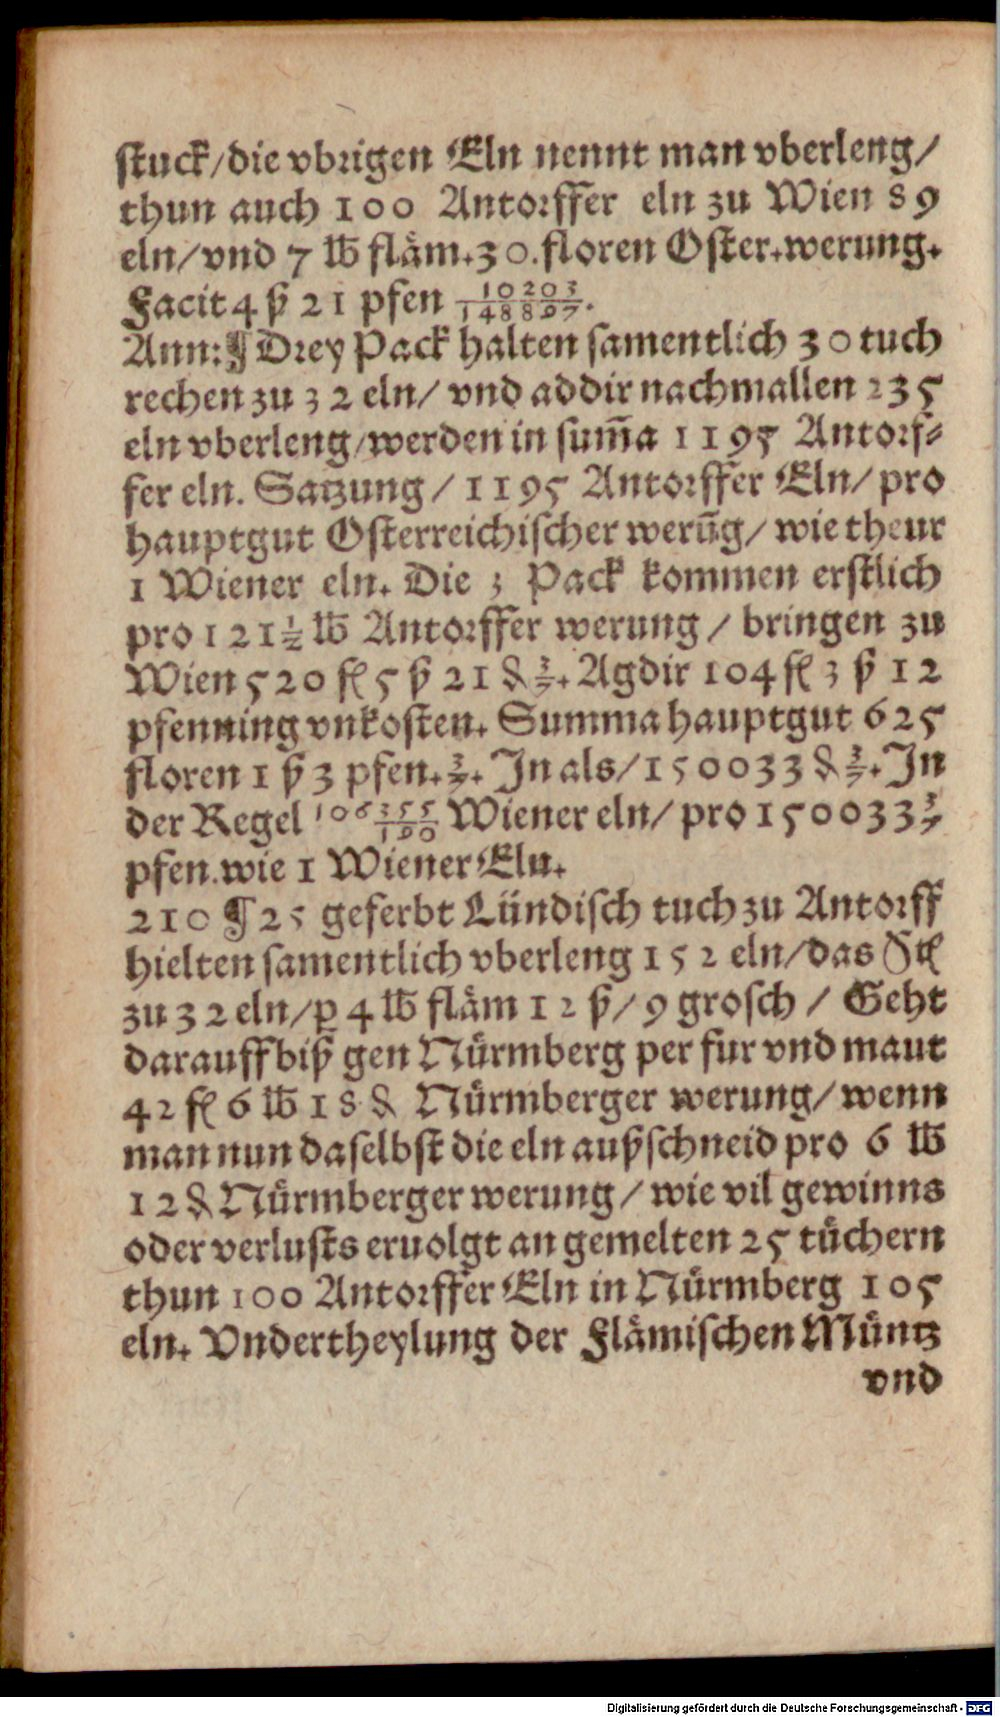 stuck/die vbrigen Eln nennt man vberleng/
thun auch 100 Antorffer eln zu Wien 89
eln/vnd 7 ℔ fläm.30.floren Oster.werung.
Facit 4 ß 21 pfen 10203/148897.
Ann:¶ Drey Pack halten samentlich 30 tuch
rechen zu 32 eln/ vnd addir nachmallen 235
eln vberleng/werden in sum̃a 1195 Antorf⸗
fer eln. Satzung/1195 Antorffer Eln/ pro
hauptgut Osterreichischer werũg/ wie theur
1 Wiener eln. Die 3 Pack kommen erstlich
pro 121½ ℔ Antorffer werung/ bringen zu
Wien 520 fl 5 ß 21 ₰ 3/7. Agdir 104 fl 3 ß 12
pfenning vnkosten. Summa hauptgut 625
floren 1 ß 3 pfen.3/7. In als/150033 ₰ 3/7. In
der Regel 1063 55/100 Wiener eln/ pro 150033 3/7
pfen.wie 1 Wiener Eln.
210 ¶ 25 geferbt Lündisch tuch zu Antorff
hielten samentlich vberleng 152 eln/das Stl
zu 32 eln/ꝑ 4 ℔ fläm 12 ß/9 grosch/ Geht
darauff biß gen Nürmberg per fur vnd maut
42 fl 6 ℔ 18 ₰ Nürmberger werung/wenn
man nun daselbst die eln außschneid pro 6 ℔
12 ₰ Nürmberger werung/wie vil gewinns
oder verlusts eruolgt an gemelten 25 tüchern
thun 100 Antorffer Eln in Nürmberg 105
eln. Vndertheylung der Flämischen Müntz
vnd
Digitalisierung gefördert durch die Deutsche Forschungsgemeinschaft - DFG